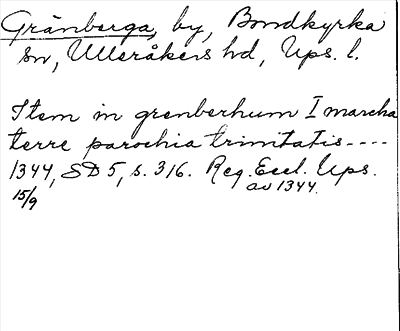 Gränberga, by, Bondkyrka
sn, Ulleråkers hd, Ups. l.
Item in grenberhum I marcha
terre parochia trinitatis----
1344, SD 5, s. 316. Reg. Eccl. Ups.
av 1344.
15/9